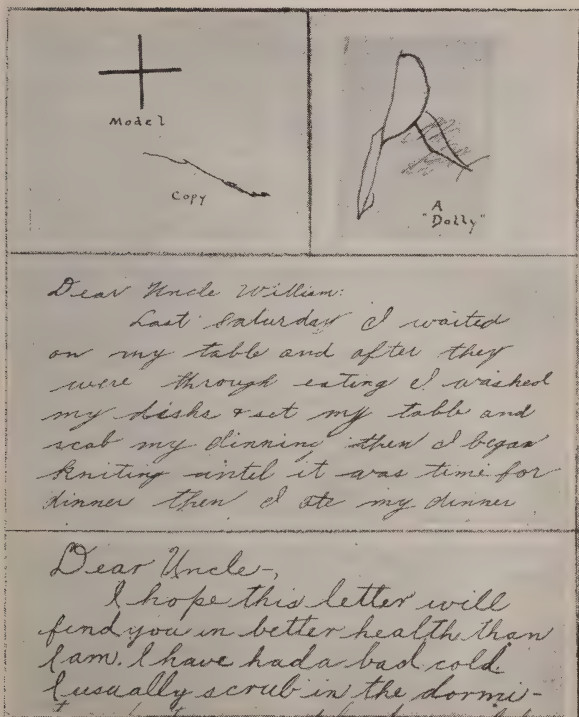 Model
Copy
A
"Dolly"
Dear Uncle William:
Last Saturday I waited
on my table and after they
were through eating I washed
my dishs & set my table and
scab my dinning, then I began
kniting until it was time for
dinner then I ate my dinner
Dear Uncle-,
I hope this letter will
find you in better health than
I am. I have had a bad cold.
I usually scrub in the dormi-